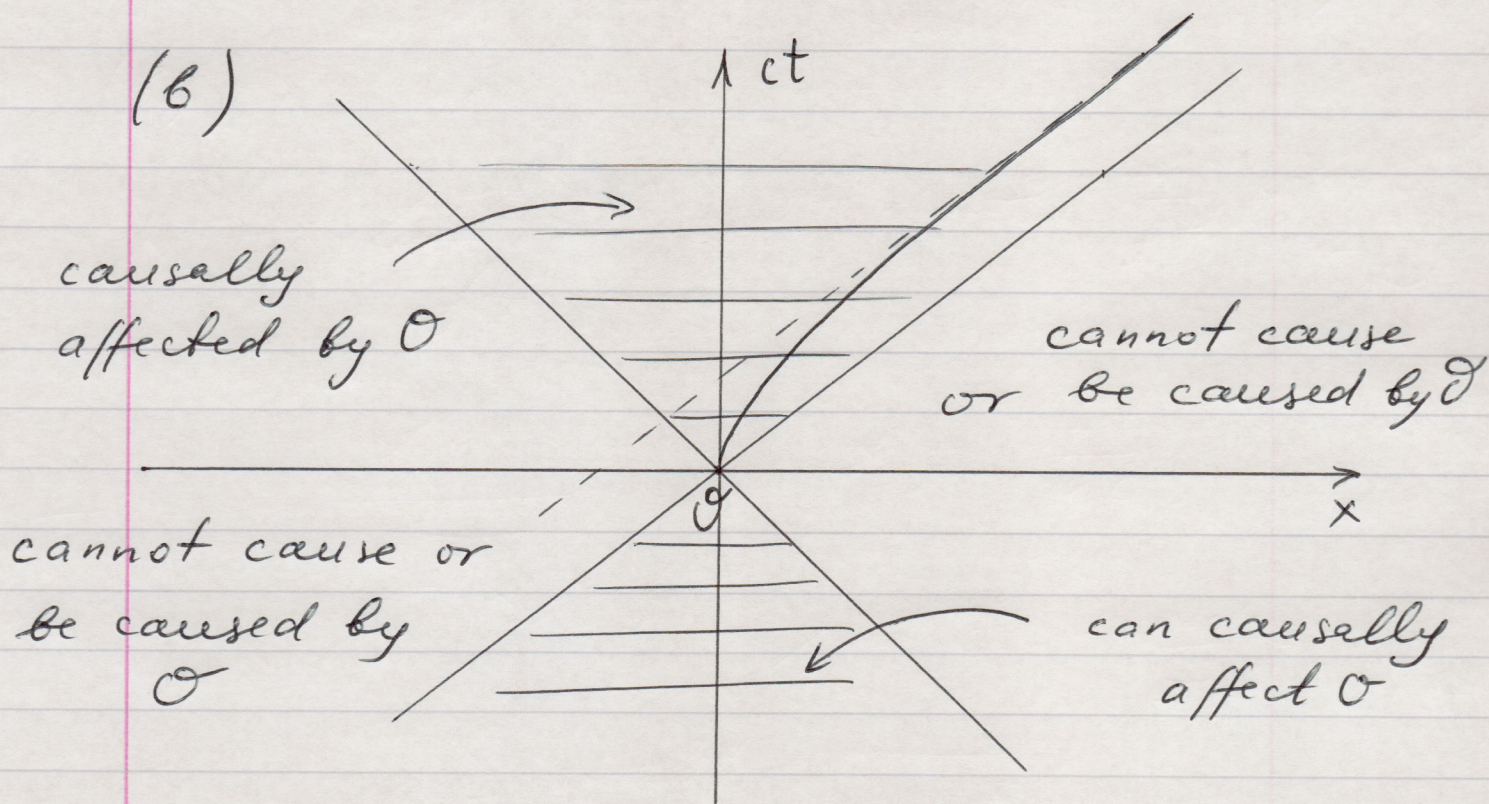 (b)
ct
causally
affected by O
cannot cause
or be caused by O
O
x
cannot cause or
be caused by
O
can causally
affect O